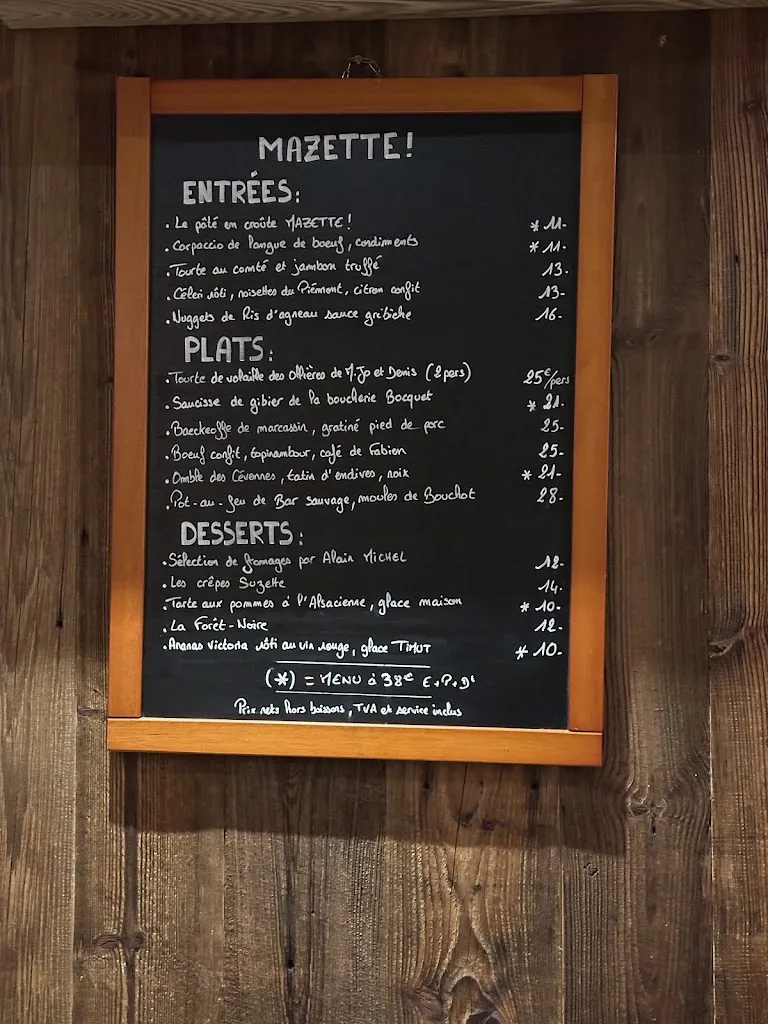 MAZETTE!
ENTRÉES:
. Le pâté en croûte MAZETTE! * 11-
. Carpaccio de langue de boeuf, condiments * 11-
. Tourte au comté et jambon truffé 13.
. Céleri rôti, noisettes du Piémont, citron confit 13-
. Nuggets de Ris d'agneau sauce gribiche 16-
PLATS:
. Tourte de volaille des Ollières de M.Jo et Denis (2 pers) 25€/pers
. Saucisse de gibier de la boucherie Bocquet * 21-
. Baeckeoffe de marcassin, gratiné pied de porc 25-
. Boeuf confit, topinambour, café de Fabien 25-
. Omble des Cévennes, tatin d'endives, noix * 21-
. Pot-au-feu de Bar sauvage, moules de Bouchot 28-
DESSERTS:
. Sélection de fromages par Alain MICHEL 12-
. Les crêpes Suzette 14-
. Tarte aux pommes à l'Alsacienne, glace maison * 10-
. La Forêt-Noire 12-
. Ananas Victoria rôti au vin rouge, glace TIMUT * 10-
(*) = MENU à 38€ E+P+Dt
Prix nets hors boissons, TVA et service inclus